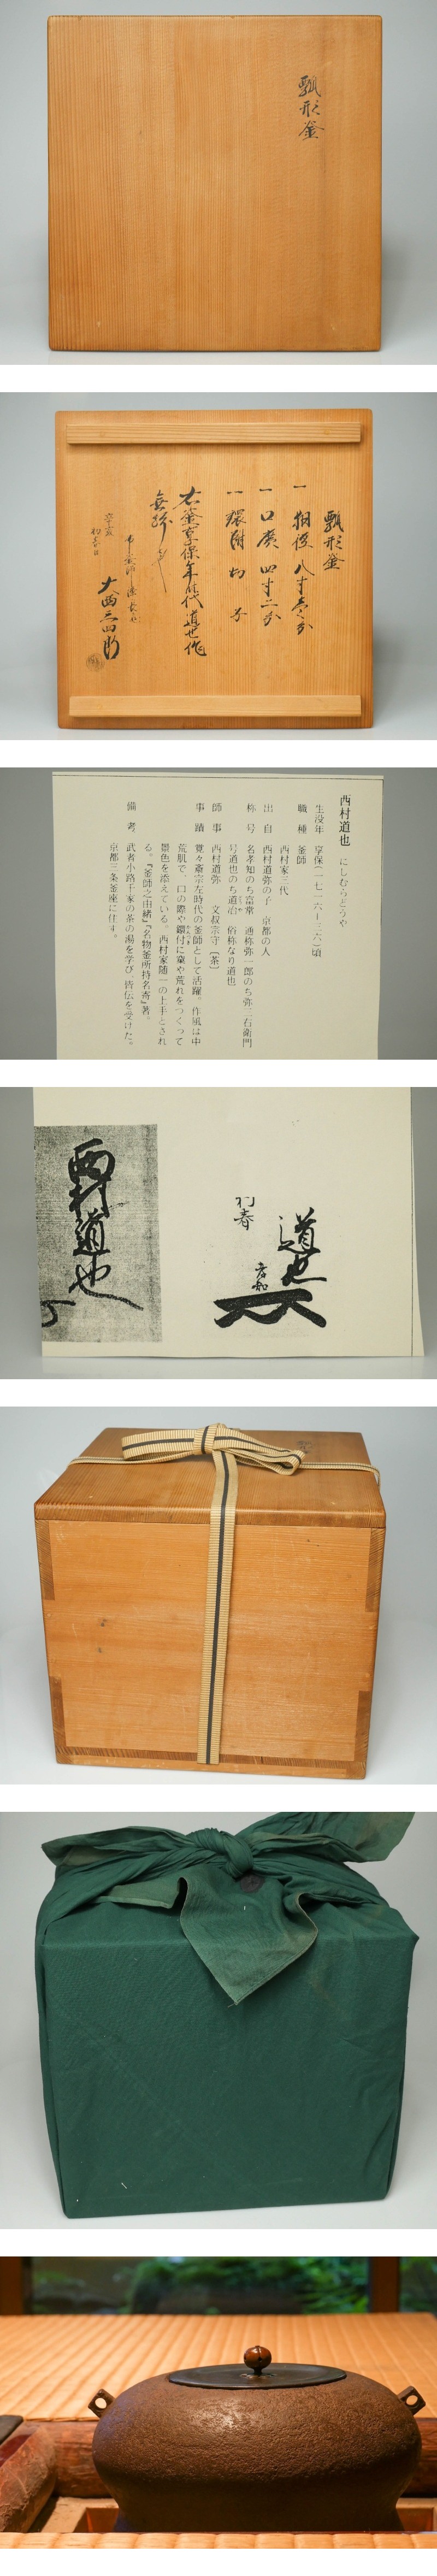 瓢形釜
瓢形釜
一 胴径 八寸
一 口廣 四寸二分
一 鐶附
右釜享保年代 道也作
無紛
大西
西村道也 にしむらどうや
生没年 享保(一七一六―三六)頃
職種 釜師
西村家三代
出自 西村道弥の子 京都の人
称号 名孝知のち常業 通称弥一郎のち弥三右衛門
号道也のち道冶 俗称なり道也
師事 西村道弥 文叔宗守〔茶〕
事蹟 覚々斎宗左時代の釜師として活躍。作風は中
荒肌で、口の際や鐶付に巣や荒れをつくって
景色を添えている。西村家随一の上手とされ
る。『釜師之由緒』『名物釜所持名寄』著。
備考 武者小路千家の茶の湯を学び、皆伝を受けた。
京都三条釜座に住す。
道也
孝知
利春
西村道也